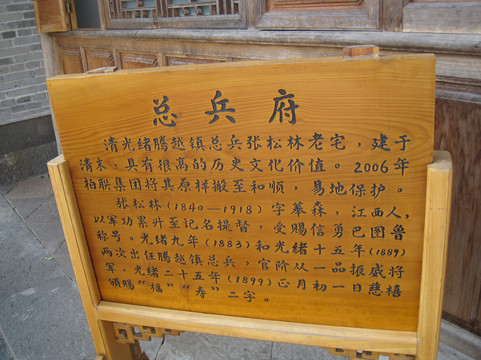 总兵府
清光绪腾越镇总兵张松林老宅，建于
清末，具有很高的历史文化价值。2006年
柏联集团将其原样搬至和顺，易地保护。
张松林（1840—1918）字摹森，江西人，
以军功累升至记名提督，受赐信勇巴图鲁
称号。光绪九年（1883）和光绪十五年（1889）
两次出任腾越镇总兵，官阶从一品振威将
军。光绪二十五年（1899）正月初一日慈禧
颁赐“福”“寿”二字。